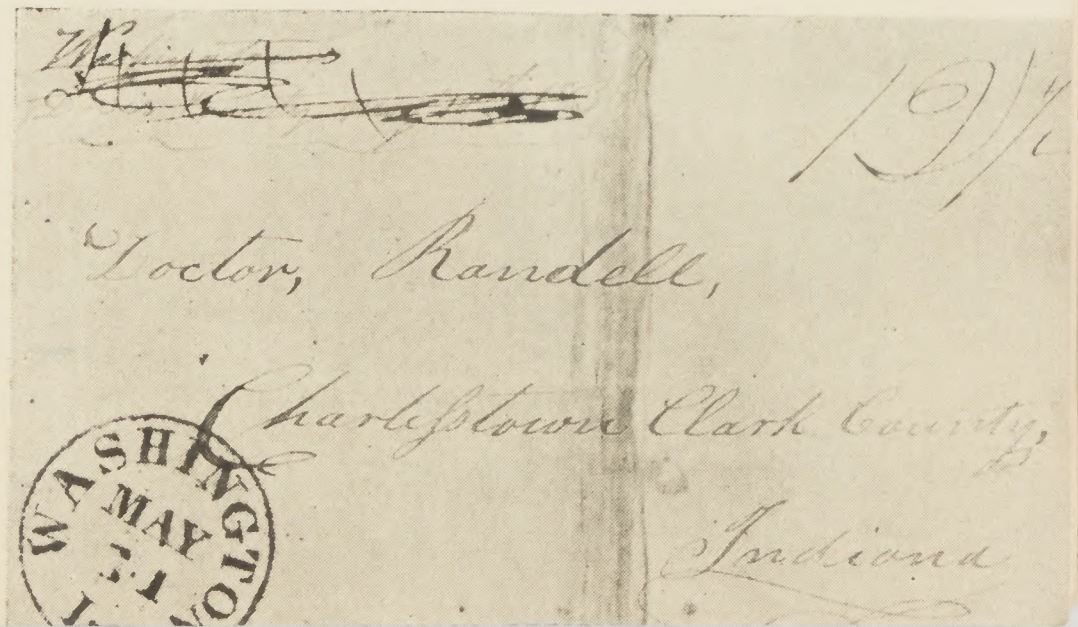 Doctor, Randell,
Charlesstown Clark County,
Indiana
WASHINGTON
MAY